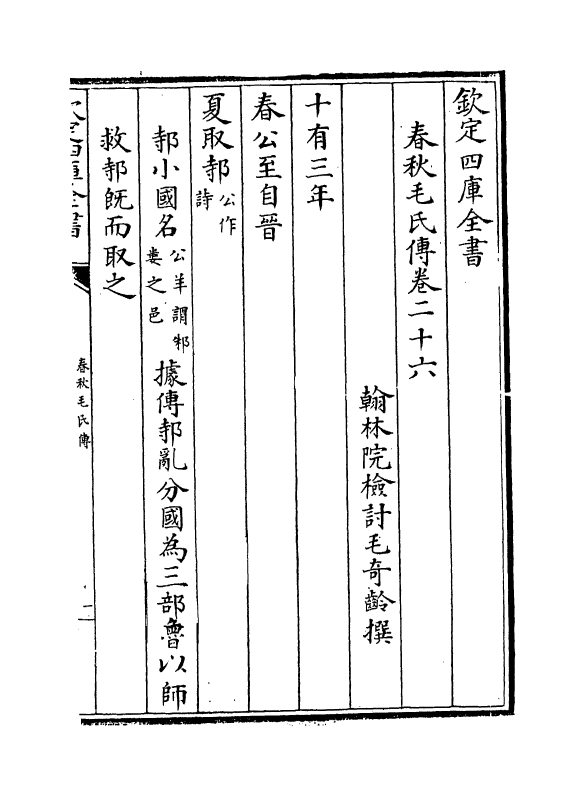 欽定四庫全書
春秋毛氏傳卷二十六
翰林院檢討毛奇齡撰
十有三年
春公至自晉
夏取邿公作詩
邿小國名公羊謂邾婁之邑據傳邿亂分國為三部魯以師
救邿既而取之
欽定四庫全書
春秋毛氏傳
一